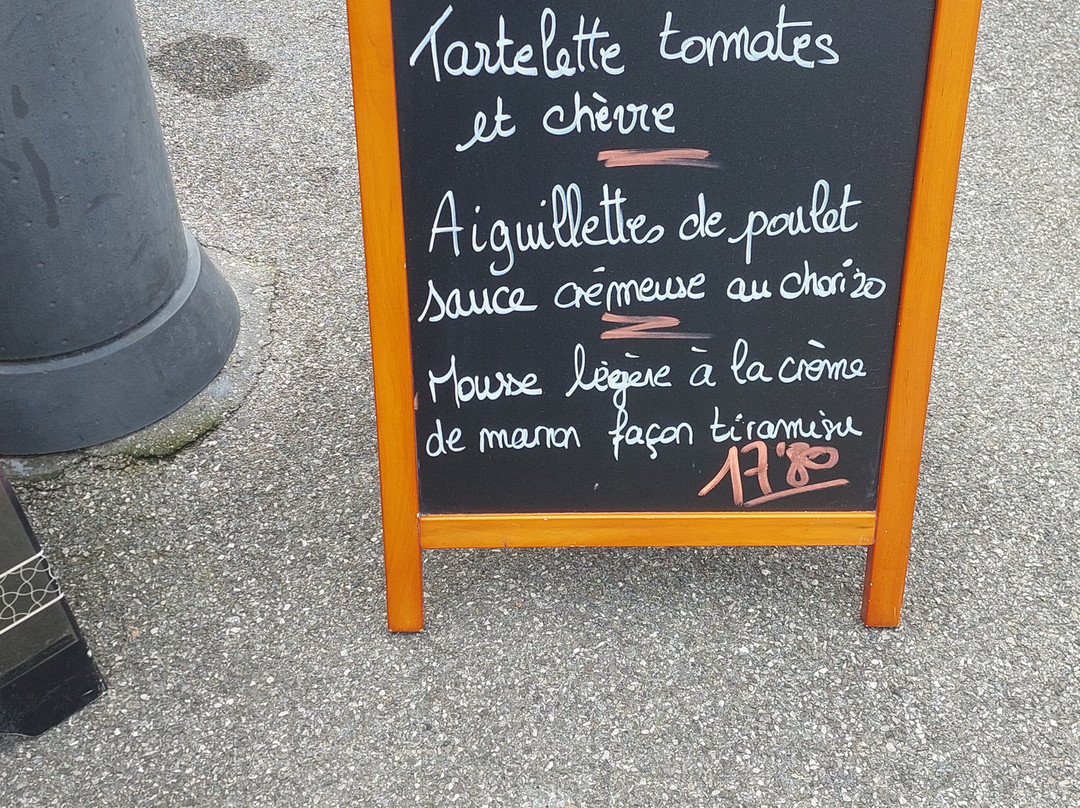 Tartelette tomates
et chèvre
Aiguillettes de poulet
sauce crémeuse au chorizo
Mousse légère à la crème
de marron façon tiramisu
17'80